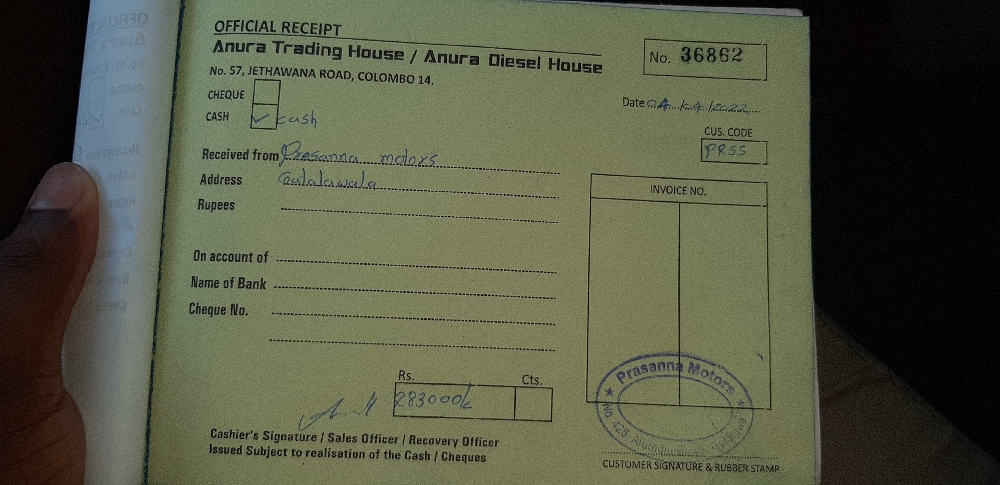 OFFICIAL RECEIPT
Anura Trading House / Anura Diesel House
No. 57, JETHAWANA ROAD, COLOMBO 14.
No. 36862
CHEQUE
CASH ✓ cash
Date 04 /04/2022
CUS. CODE
PRSS
Received from Prasanna motors
Address
Rupees
INVOICE NO.
On account of
Name of Bank
Cheque No.
Rs. Cts.
283000/-
Cashier's Signature / Sales Officer / Recovery Officer
Issued Subject to realisation of the Cash / Cheques
★ Prasanna Motors ★
No. 426
CUSTOMER SIGNATURE & RUBBER STAMP